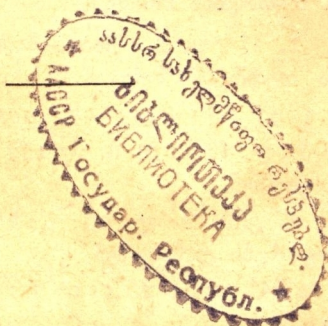 აასსრ სახელმწიფო რესპუბლ.
ბიბლიოთეკა
БИБЛИОТЕКА
ААССР Государ. Республ.